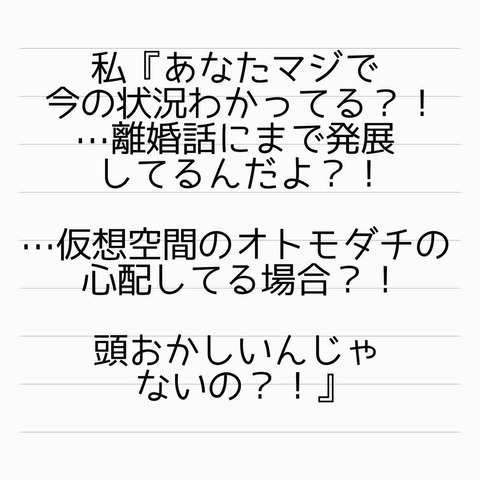 私『あなたマジで
今の状況わかってる？！
…離婚話にまで発展
してるんだよ？！
…仮想空間のオトモダチの
心配してる場合？！
頭おかしいんじゃ
ないの？！』